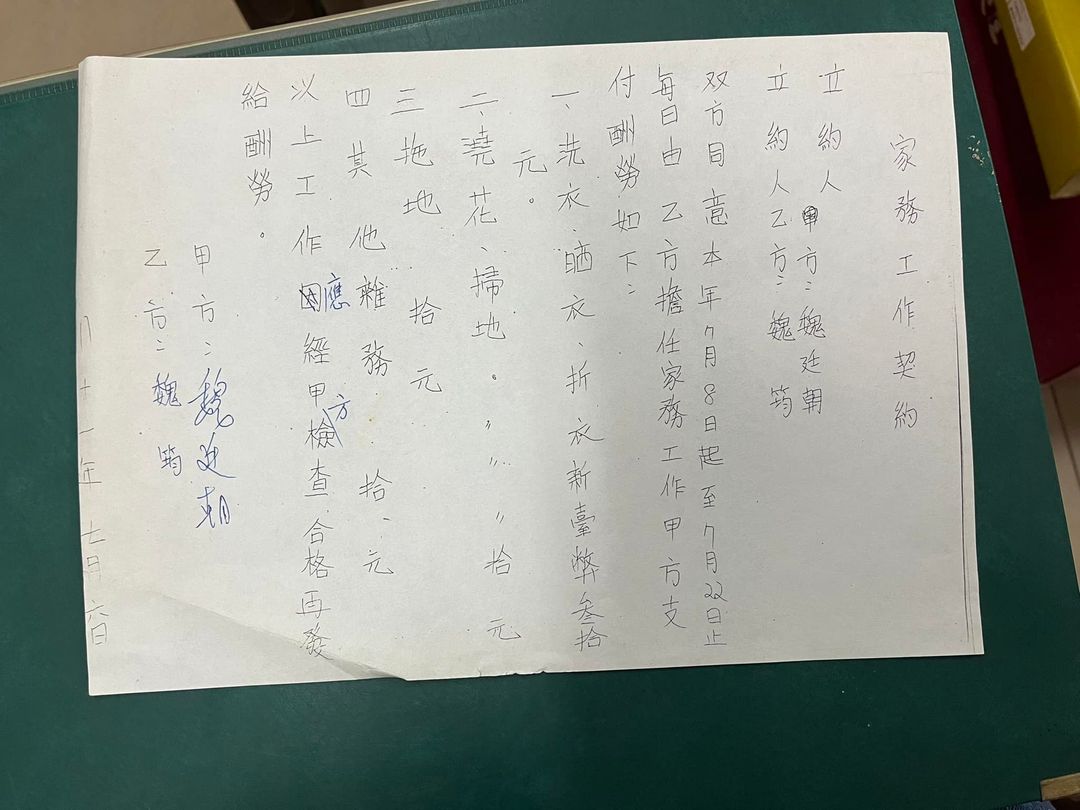 家務工作契約
立約人甲方：魏廷朝
立約人乙方：魏筠
双方同意本年7月8日起至7月22日止
每日由乙方擔任家務工作甲方支
付酬勞如下：
一、洗衣、晒衣、折衣新臺幣叁拾
元。
二、澆花、掃地。〃〃〃拾元
三拖地拾元
四其他雜務拾元
以上工作應經甲方檢查合格再發
給酬勞。
甲方：魏廷朝
乙方：魏筠
八十一年七月六日